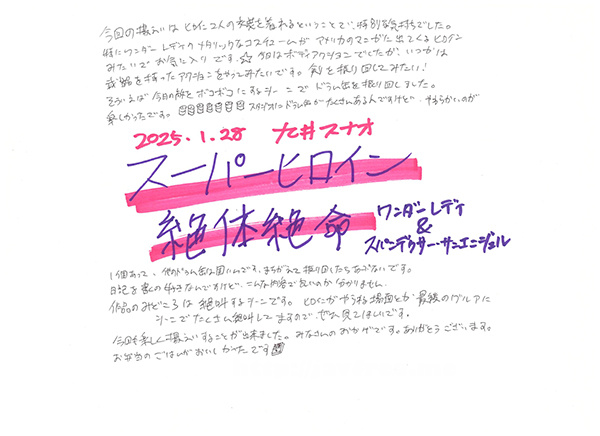 今回の撮影はヒロイン2人の衣装を着れるということで、特別な気持ちでした。
特にワンダーレディのメタリックなコスチュームがアメリカのマンガに出てくるヒロイン
みたいでお気に入りです。☆ 今日はボディアクションでしたが、いつかは
武器を持ったアクションをやってみたいです。剣を振り回してみたい!
そういえば今日の敵をボコボコにするシーンでドラム缶を振り回しました。
楽しかったです。スタジオにドラム缶がたくさんあるんですけど、やわらかいのが
2025.1.28 九井スナオ
スーパーヒロイン
絶体絶命
ワンダーレディ
&
スパンデクサー・サンエンジェル
1個あって、他のドラム缶は固いんです。まちがえて振り回したらあぶないです。
日記を書くの好きなんですけど、こんな内容で良いのか分かりません。
作品のみどころは絶叫するシーンです。ヒロインがやられる場面とか最後の
シーンでたくさん絶叫してますので、ぜひ見てほしいです。
今回も楽しく撮影することが出来ました。みなさんのおかげです。ありがとうございます。
お弁当のごはんがおいしかったです